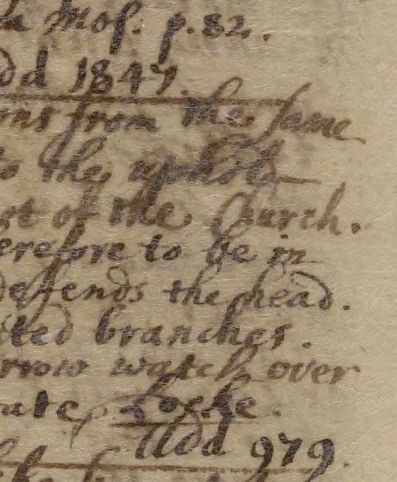 la Mos. p. 82.
dd 1847.
ons from the same
to the upholst
ot of the Church.
erefore to be in
defends the head.
ited branches.
rrow watch over
ate, Locke.
Add 979.